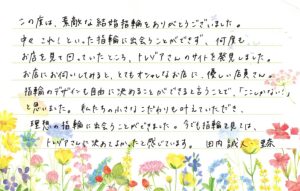 この度は、素敵な結婚指輪をありがとうございました。
中々これ!といった指輪に出会うことができず、何度も
お店を見て回っていたところ、トレセアさんのサイトを発見しました。
お店にお伺いしてみると、とてもオシャレなお店に、優しい店員さん。
指輪のデザインも自由に決めることができると言うことで、「ここしかない!」
と思いました。私たちの小さなこだわりも叶えていただき、
理想の指輪に出会うことができました。今でも指輪を見ては、
トレセアさんで決めてよかったと感じています。 田内 誠人